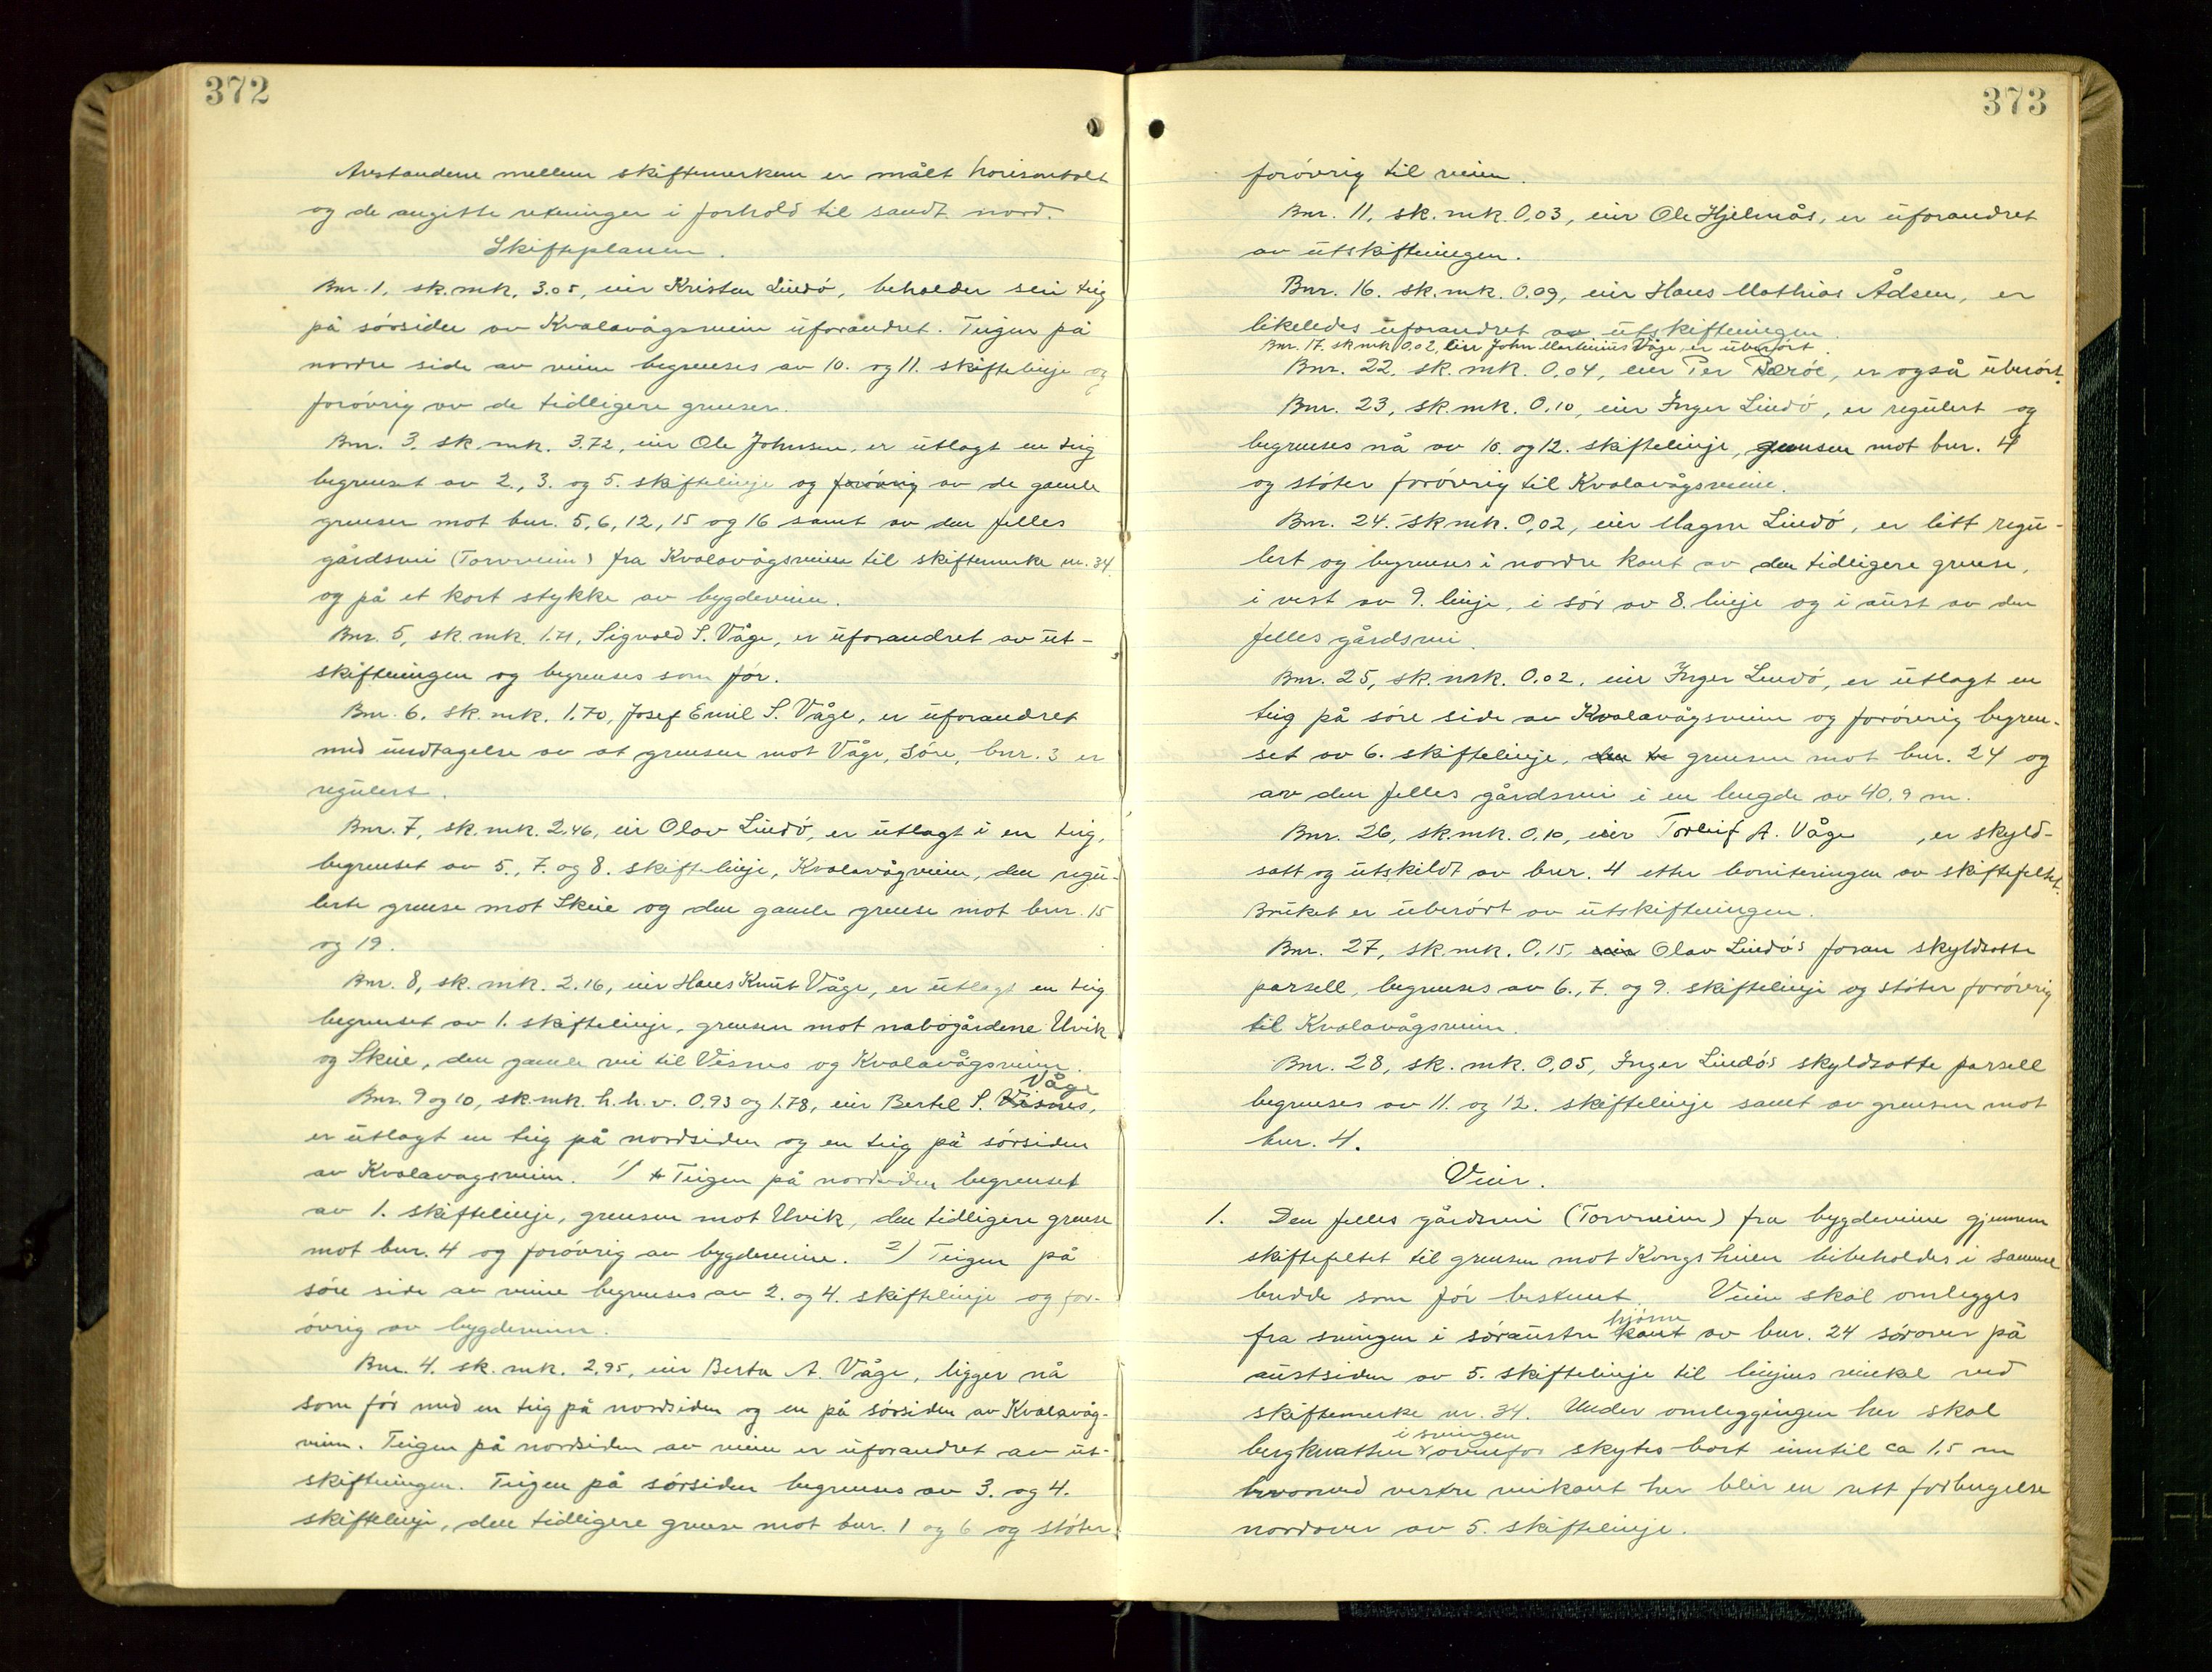 372
Avstandene mellem skiftemerkene er målt horisontalt
og de angitte retninger i forhold til sandt nord.
Skifteplanen.
Bnr. 1, sk.mk. 3.05, eier Kristen Lindö, beholder sin teig
på sörsiden av Kvalavågsveien uforandret. Teigen på
nordre side av veien begrenses av 10. og 11. skiftelinje og
forövrig av de tidligere grenser.
Bnr. 3, sk.mk. 3.72, eier Ole Johnsen, er utlagt en teig
begrenset av 2., 3. og 5. skiftelinje og forövrig av de gamle
grenser mot bnr. 5, 6, 12, 15 og 16 samt av den felles
gårdsvei (Torvveien) fra Kvalavågsveien til skiftemerke nr. 34
og på et kort stykke av bygdeveien.
Bnr. 5, sk.mk. 1.71, Sigvald S. Våge, er uforandret av ut-
skiftningen og begrenses som för.
Bnr. 6, sk.mk. 1.70, Josef Emil S. Våge, er uforandret
med undtagelse av at grensen mot Våge, Söre, bnr. 3 er
regulert.
Bnr. 7, sk.mk. 2.46, eier Olav Lindö, er utlagt i en teig,
begrenset av 5., 7. og 8. skiftelinje, Kvalavågveien, den regu-
lerte grense mot Skeie og den gamle grense mot bnr. 15
og 19.
Bnr. 8, sk.mk. 2.16, eier Hans Knut Våge, er utlagt en teig
begrenset av 1. skiftelinje, grensen mot nabogårdene Utvik
og Skeie, den gamle vei til Visnes og Kvalavågsveien.
Våge
Bnr. 9 og 10, sk.mk. h.h.v. 0.93 og 1.78, eier Bertel S. Visnes,
er utlagt en teig på nordsiden og en teig på sörsiden
av Kvalavagsveien. 1) Teigen på nordsiden begrenset
av 1. skiftelinje, grensen mot Utvik, den tidligere grense
mot bnr. 4 og forövrig av bygdeveiene. 2) Teigen på
söre side av veien begrenses av 2. og 4. skiftelinje og for-
övrig av bygdeveien.
Bnr. 4. sk.mk. 2.95, eier Berta A. Våge, ligger nå
som för med en teig på nordsiden og en på sörsiden av Kvalavåg-
veien. Teigen på nordsiden av veien er uforandret av ut-
skiftningen. Teigen på sörsiden begrenses av 3. og 4.
skiftelinje, den tidligere grense mot bnr. 1 og 6 og stöter
373
forövrig til veien.
Bnr. 11, sk.mk. 0,03, eier Ole Hjelmås, er uforandret
av utskiftningen.
Bnr. 16. sk.mk. 0,09, eier Hans Mathias Ådsen, er
likeledes uforandret av utskiftningen.
Bnr. 17. sk.mk. 0,02, eier John Martinius Våge, er uberört.
Bnr. 22. sk.mk. 0,04, eier Per Pæröe, er også uberört.
Bnr. 23, sk.mk. 0,10, eier Inger Lindö, er regulert og
begrenses nå av 10. og 12. skiftelinje, grensen mot bnr. 4
og stöter forövrig til Kvalavågsveien.
Bnr. 24. sk.mk. 0,02, eier Magne Lindö, er litt regu-
lert og begrenses i nordre kant av den tidligere grense,
i vest av 9. linje, i sör av 8. linje og i aust av den
felles gårdsvei.
Bnr. 25, sk.mrk. 0.02, eier Inger Lindö, er utlagt en
teig på söre side av Kvalavågsveien og forövrig begren-
set av 6. skiftelinje, grensen mot bnr. 24 og
av den felles gårdsvei i en lengde av 40,9 m.
Bnr. 26, sk.mk. 0,10, eier Torleif A. Våge, er skyld-
satt og utskildt av bnr. 4 etter boniteringen av skiftefeltet.
Bruket er uberört av utskiftningen.
Bnr. 27, sk.mk. 0.15, eier Olav Lindös foran skyldsatte
parsell, begrenses av 6., 7. og 9. skiftelinje og stöter forövrig
til Kvalavågsveien.
Bnr. 28, sk.mk. 0,05, Inger Lindös skyldsatte parsell
begrenses av 11. og 12. skiftelinje samt av grensen mot
bnr. 4.
Veier.
1. Den felles gårdsvei (Torvveien) fra bygdeveiene gjennem
skiftefeltet til grensen mot Kongsheien bibeholdes i samme
bredde som för bestemt. Veien skal omlegges
hjörne
fra svingen i söraustre kant av bnr. 24 sörover på
austsiden av 5. skiftelinje til linjens vinkel ved
skiftemerke nr. 34. Under omleggingen her skal
i svingen
bergknatten ovenfor skytes bort inntil ca 1,5 m
hvorved vestre veikant her blir en rett forlengelse
nordover av 5. skiftelinje.